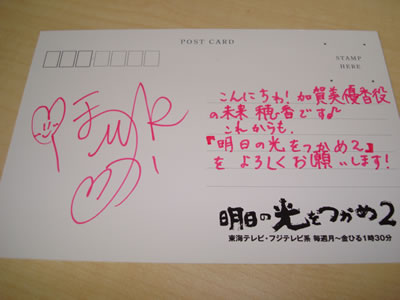 POST CARD
STAMP
HERE
こんにちわ！加賀美優香役
の未来穂香です♪
これからも、
『明日の光をつかめ2』
をよろしくお願いします！
明日の光をつかめ2
東海テレビ・フジテレビ系 毎週月〜金ひる1時30分